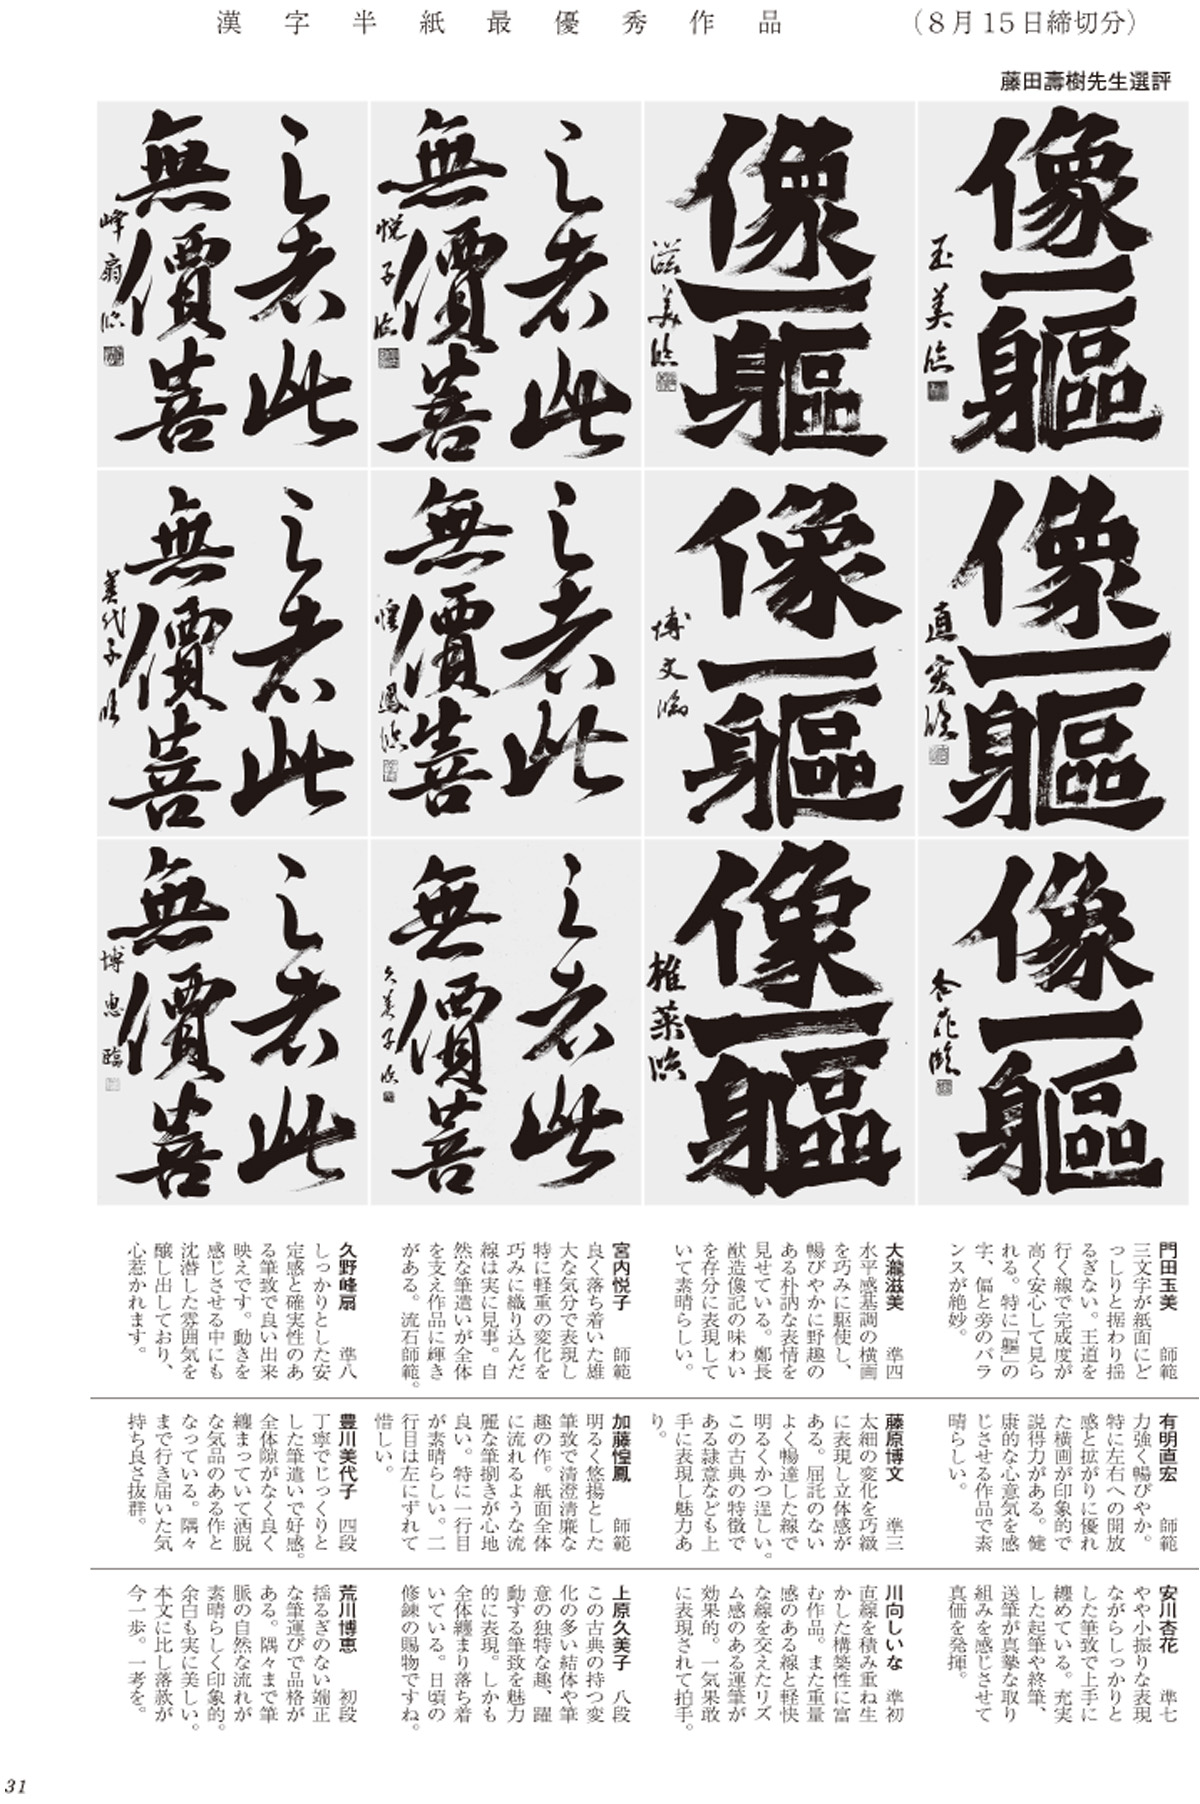 漢字半紙最優秀作品
（8月15日締切分）
藤田壽樹先生選評
像一軀
玉美臨
像一軀
滋美臨
之者此
無價喜
悦子臨
之者此
無價喜
峰扇臨
像一軀
直宏臨
像一軀
博文臨
之者此
無價喜
惶鳳臨
之者此
無價喜
美代子臨
像一軀
杏花臨
像一軀
椎菜臨
之者此
無價喜
久美子臨
之者此
無價喜
博惠臨
門田玉美　師範
三文字が紙面にど
っしりと据わり揺
るぎない。王道を
行く線で完成度が
高く安心して見ら
れる。特に「軀」の
字、偏と旁のバラ
ンスが絶妙。
大瀧滋美　準四
水平感基調の横画
を巧みに駆使し、
暢びやかに野趣の
ある朴訥な表情を
見せている。鄭長
猷造像記の味わい
を存分に表現して
いて素晴らしい。
宮内悦子　師範
良く落ち着いた雄
大な気分で表現し
特に軽重の変化を
巧みに織り込んだ
線は実に見事。自
然な筆遣いが全体
を支え作品に輝き
がある。流石師範。
久野峰扇　準八
しっかりとした安
定感と確実性のあ
る筆致で良い出来
映えです。動きを
感じさせる中にも
沈潜した雰囲気を
醸し出しており、
心惹かれます。
有明直宏　師範
力強く暢びやか。
特に左右への開放
感と拡がりに優れ
た横画が印象的で
説得力がある。健
康的な心意気を感
じさせる作品で素
晴らしい。
藤原博文　準三
太細の変化を巧緻
に表現し立体感が
ある。屈託のない
よく暢達した線で
明るくかつ逞しい。
この古典の特徴で
ある隷意なども上
手に表現し魅力あ
り。
加藤惶鳳　師範
明るく悠揚とした
筆致で清澄清廉な
趣の作。紙面全体
に流れるような流
麗な筆捌きが心地
良い。特に一行目
が素晴らしい。二
行目は左にずれて
惜しい。
豊川美代子　四段
丁寧でじっくりと
した筆遣いで好感。
全体隙がなく良く
纏まっていて洒脱
な気品のある作と
なっている。隅々
まで行き届いた気
持ち良さ抜群。
安川杏花　準七
やや小振りな表現
ながらしっかりと
した筆致で上手に
纏めている。充実
した起筆や終筆、
送筆が真摯な取り
組みを感じさせて
真価を発揮。
川向しいな　準初
直線を積み重ね生
かした構築性に富
む作品。また重量
感のある線と軽快
な線を交えたリズ
ム感のある運筆が
効果的。一気果敢
に表現されて拍手。
上原久美子　八段
この古典の持つ変
化の多い結体や筆
意の独特な趣、躍
動する筆致を魅力
的に表現。しかも
全体纏まり落ち着
いている。日頃の
修錬の賜物ですね。
荒川博恵　初段
揺るぎのない端正
な筆運びで品格が
ある。隅々まで筆
脈の自然な流れが
素晴らしく印象的。
余白も実に美しい。
本文に比し落款が
今一歩。一考を。
31